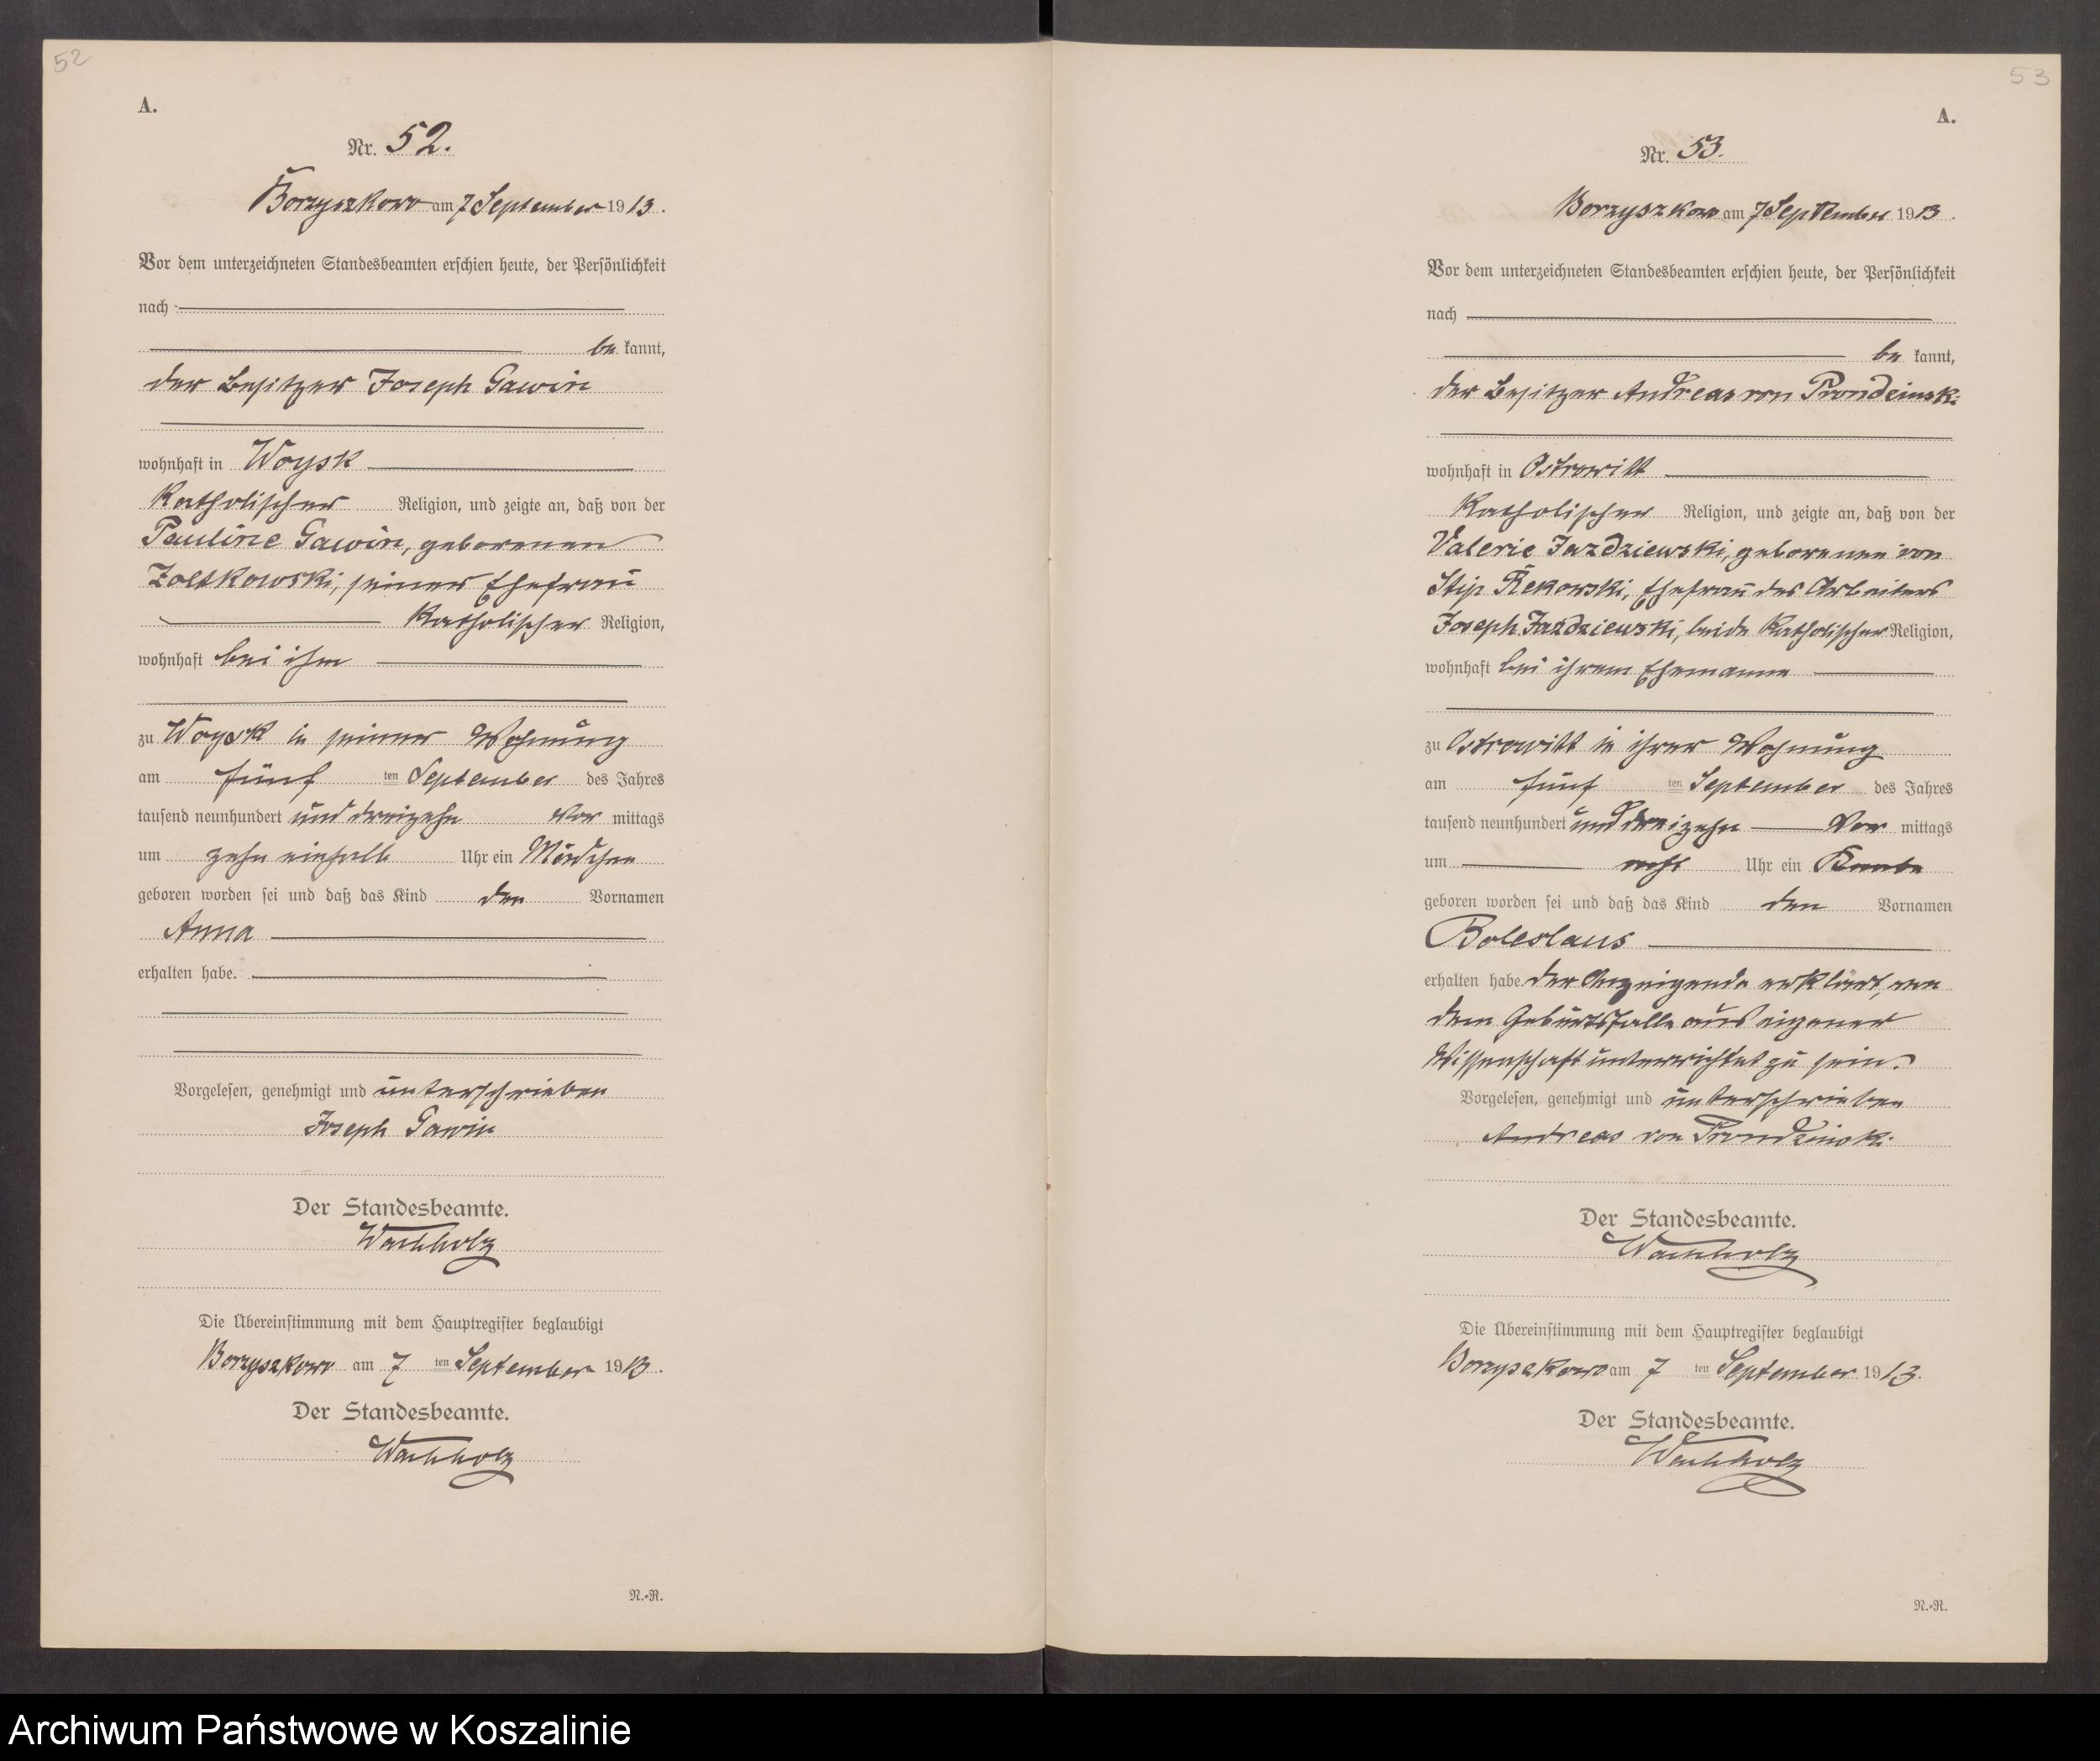 52
A.
Nr. 52.
Borzyszkowo am 7 September 1913.
Vor dem unterzeichneten Standesbeamten erschien heute, der Persönlichkeit
nach
be kannt,
der Besitzer Joseph Gawin
wohnhaft in Woysk
Katholischer Religion, und zeigte an, daß von der
Pauline Gawin, geborenen
Zoltkowski, seiner Ehefrau
Katholischer Religion,
wohnhaft bei ihm
zu Woysk in seiner Wohnung
am fünf ten September des Jahres
tausend neunhundert und dreizehn Vor mittags
um zehn einhalb Uhr ein Mädchen
geboren worden sei und daß das Kind den Vornamen
Anna
erhalten habe.
Vorgelesen, genehmigt und unterschrieben
Joseph Gawin
Der Standesbeamte.
Wachholz
Die Übereinstimmung mit dem Hauptregister beglaubigt
Borzyszkowo am 7 ten September 1913.
Der Standesbeamte.
Wachholz
N.-R.
53
A.
Nr. 53.
Borzyszkowo am 7 September 1913.
Vor dem unterzeichneten Standesbeamten erschien heute, der Persönlichkeit
nach
be kannt,
der Besitzer Andreas von Prondzinski
wohnhaft in Ostrowitt
Katholischer Religion, und zeigte an, daß von der
Valerie Jazdziewski, geborenen von
Stip Rekowski, Ehefrau des Arbeiters
Joseph Jazdziewski, beide Katholischer Religion,
wohnhaft bei ihrem Ehemanne
zu Ostrowitt in ihrer Wohnung
am fünf ten September des Jahres
tausend neunhundert und dreizehn Vor mittags
um acht Uhr ein Knabe
geboren worden sei und daß das Kind den Vornamen
Boleslaus
erhalten habe. Der Anzeigende erklärt, von
dem Geburtsfalle aus eigener
Wissenschaft unterrichtet zu sein.
Vorgelesen, genehmigt und unterschrieben
Andreas von Prondzinski
Der Standesbeamte.
Wachholz
Die Übereinstimmung mit dem Hauptregister beglaubigt
Borzyszkowo am 7 ten September 1913.
Der Standesbeamte.
Wachholz
N.-R.
Archiwum Państwowe w Koszalinie